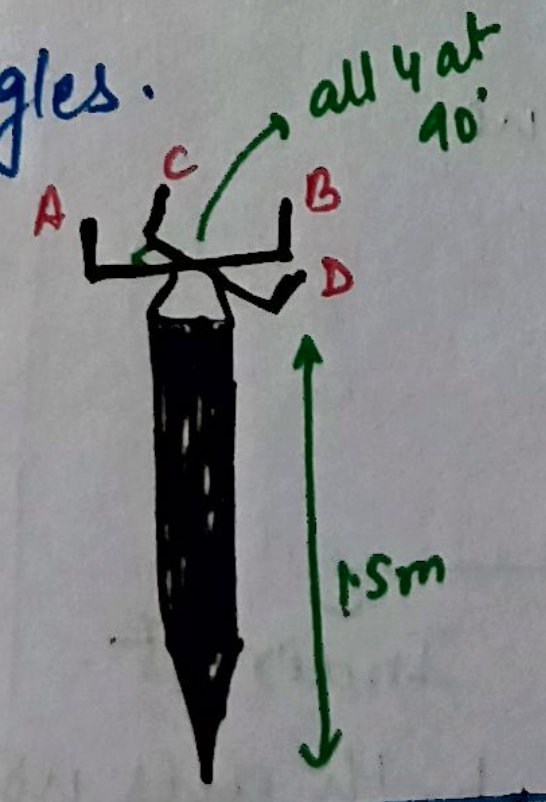 gles.
all 4 at
90°
C
A
B
D
1.5m